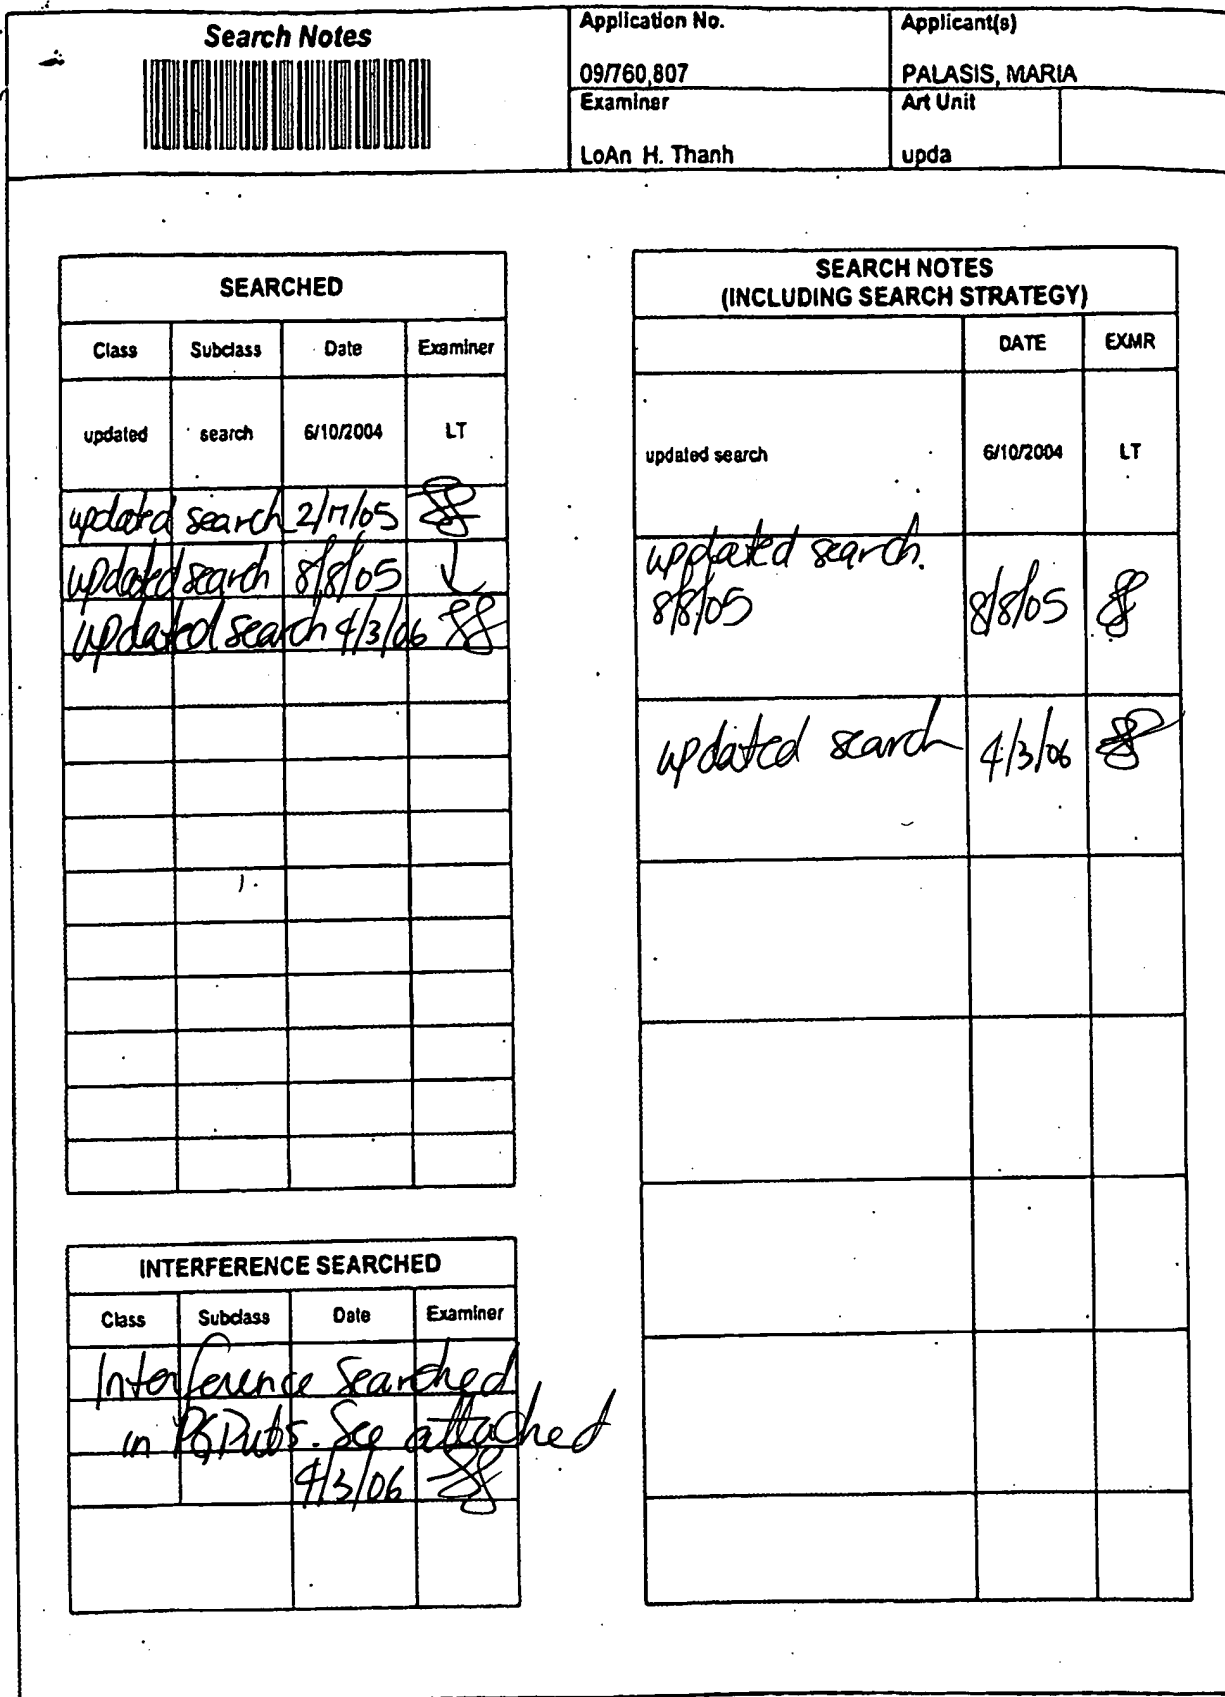 Search Notes
Application No.
Applicant(s)
09/760,807
PALASIS, MARIA
Examiner
Art Unit
LoAn H. Thanh
upda
SEARCHED
Class Subclass Date Examiner
updated search 6/10/2004 LT
updated search 2/17/05
updated search 8/8/05
updated search 4/3/06
INTERFERENCE SEARCHED
Class Subclass Date Examiner
Interference Searched
in PGPubs. See attached
4/3/06
SEARCH NOTES
(INCLUDING SEARCH STRATEGY)
DATE EXMR
updated search 6/10/2004 LT
updated search.
8/8/05 8/8/05
updated search 4/3/06